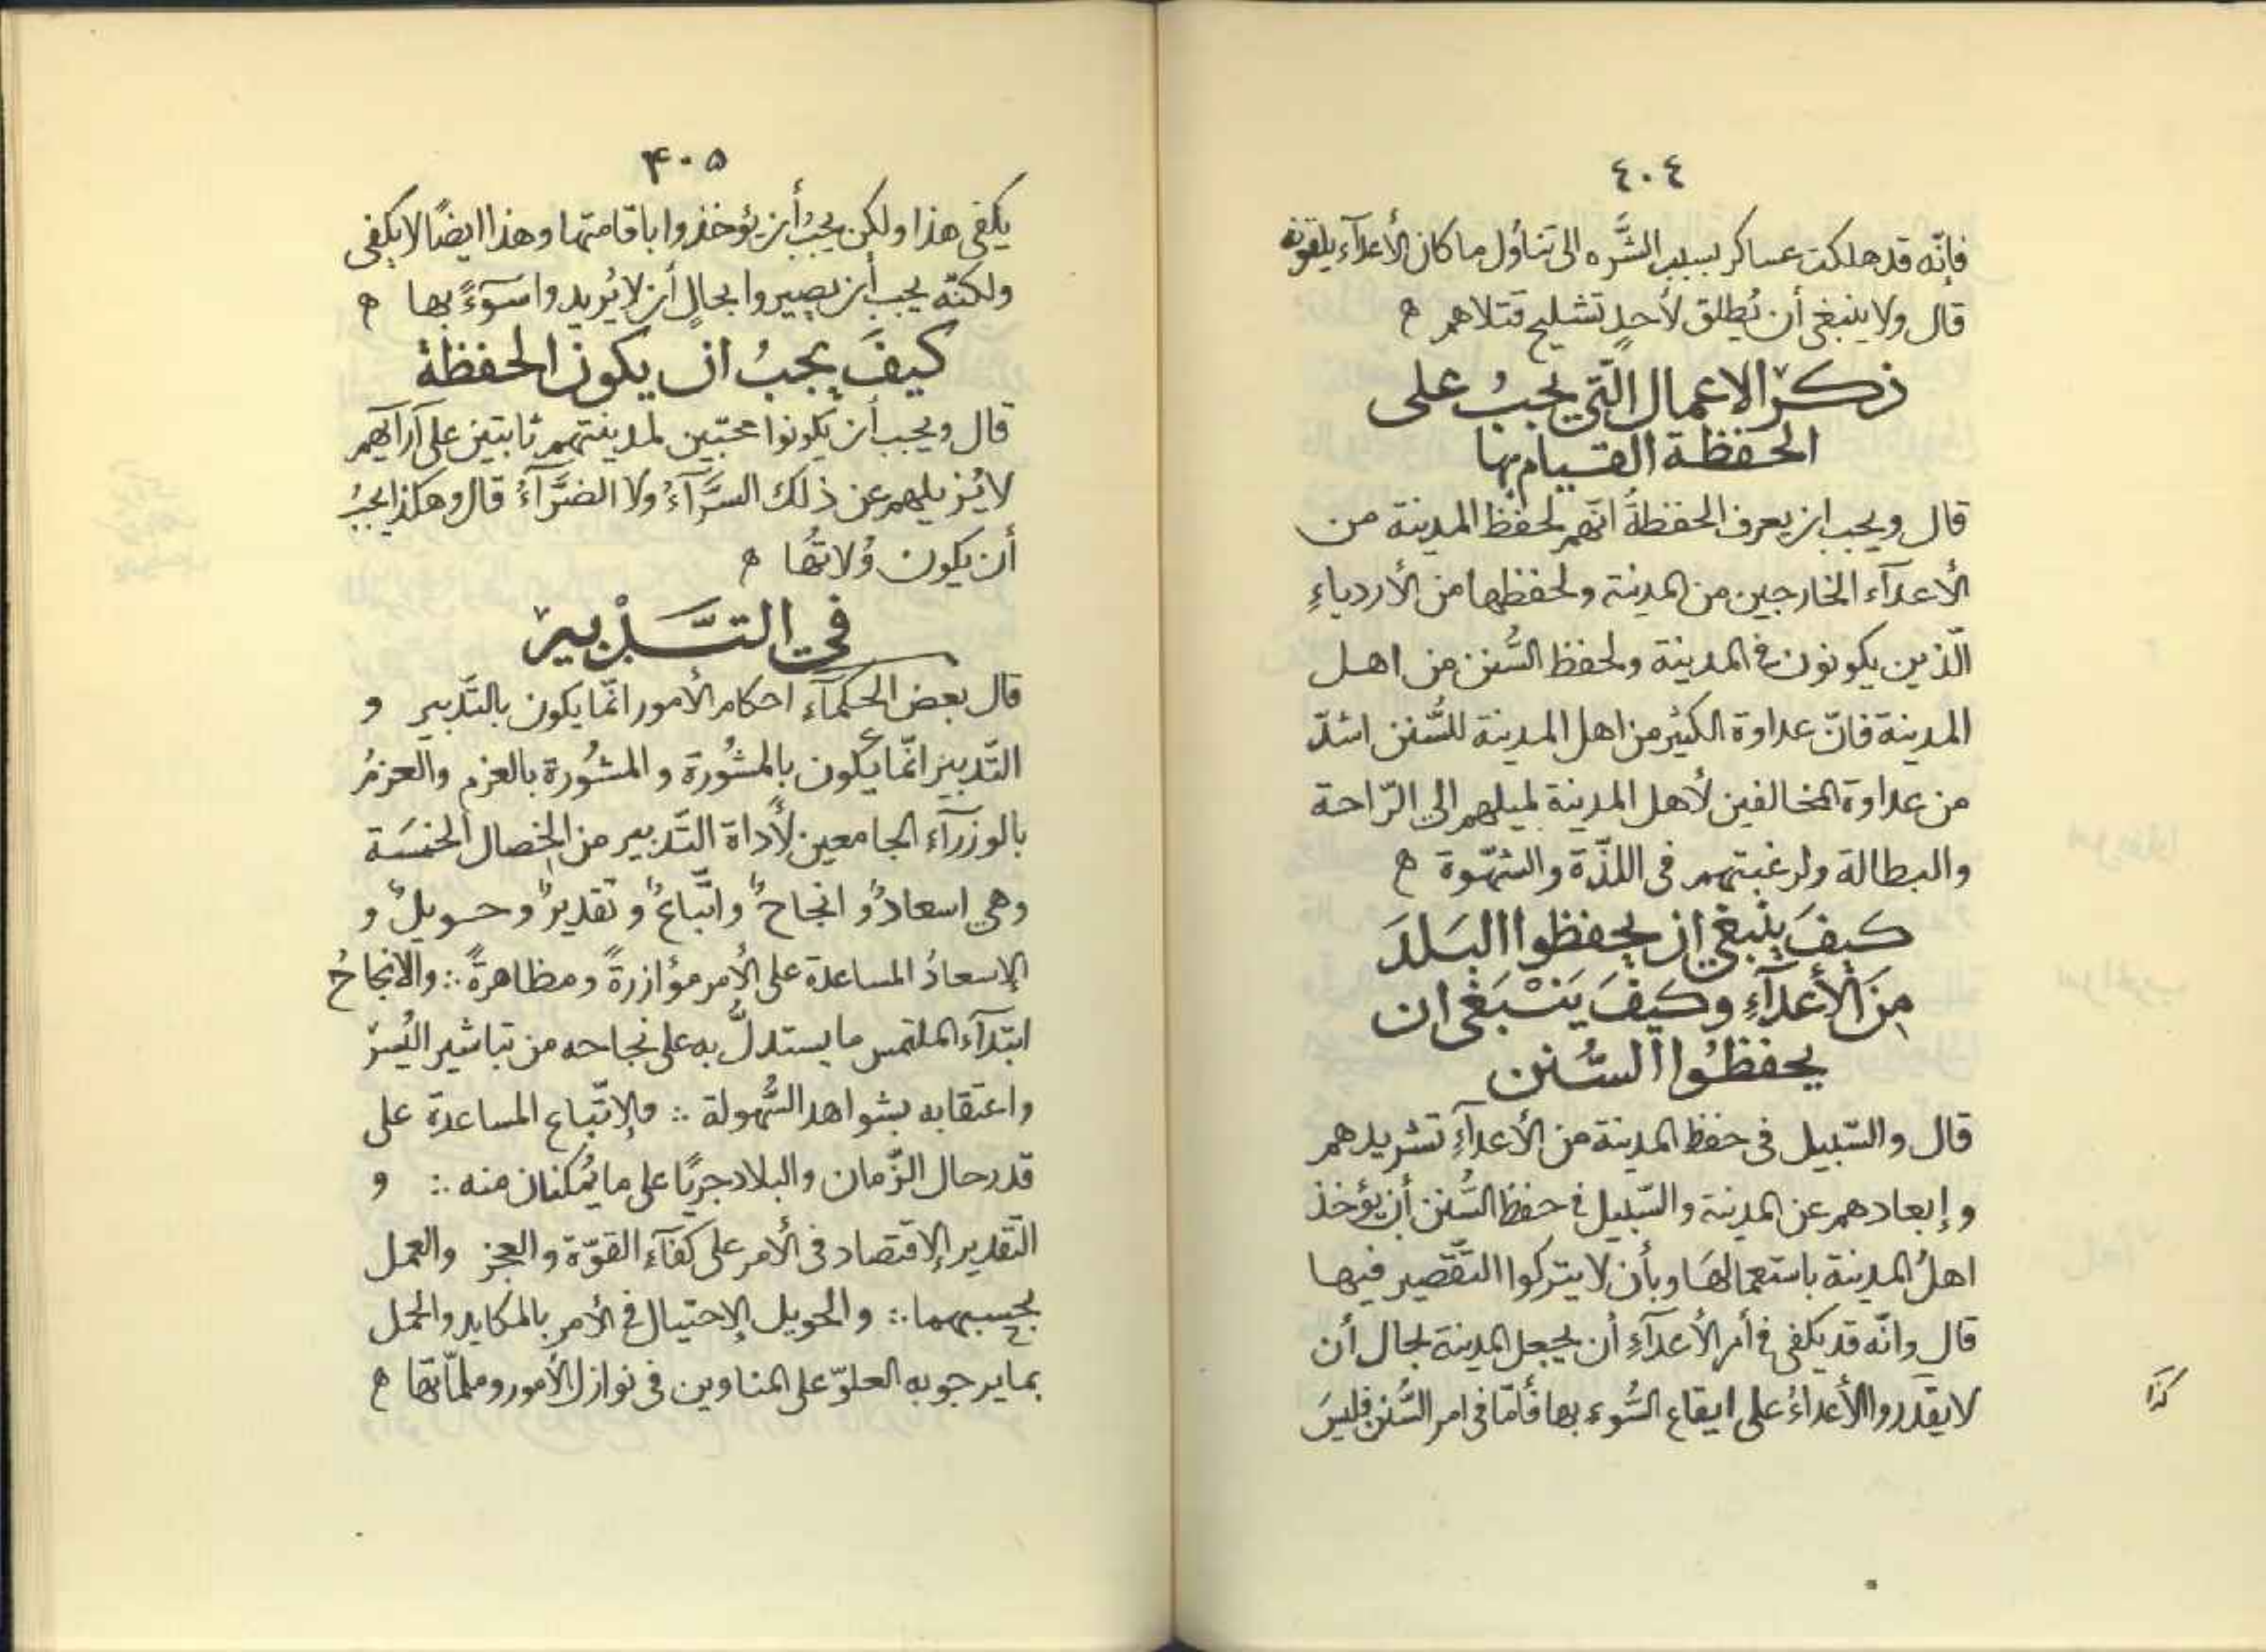 ٤٠٤
فإنّه قد هلكت عساكر بسبب الشَّره الى تناول ما كان الأعدآء يلقونه
قال ولا ينبغى أن يُطلق لأحدٍ تشليح قتلاهم ه
ذكر الاعمال الّتى يجبُ على
الحفظة القيام بها
قال ويجب ان يعرف الحفظةُ انّهم لحفظ المدينة من
الأعدآء الخارجين من المدينة ولحفظها من الأردياءِ
الّذين يكونون فى المدينة ولحفظ السُّنن من اهل
المدينة فانّ عداوة الكثير من اهل المدينة للسُّنن اشدّ
من عداوة المخالفين لأهل المدينة لميلهم الى الرّاحة
والبطالة ولرغبتهم فى اللذّة والشّهوة ه
كيفَ ينبغى ان يحفظوا البَلدَ
مِنَ الأعدآءِ وكيفَ يَنْبَغى ان
يحفظُوا السُّنن
قال والسّبيل فى حفظ المدينة من الأعدآءِ تشريدهم
وإبعادهم عن المدينة والسّبيل فى حفظ السُّنن أن يؤخذ
اهلُ المدينة باستعمالهَا وبأن لا يتركوا التّقصير فيها
قال وانّه قد يكفى فى أمر الأعدآءِ أن يجعل المدينة بحال أن
لا يقدروا الأعداءُ على ايقاع السُّوء بها فأمّا فى امر السُّنن فليسَ
كذا
۴۰۵
يكفى هذا ولكن يجبُ أن يؤخذوا باقامتها وهذا ايضًا لا يكفى
ولكنّه يجب أن يصيروا بحالٍ أن لا يُريدوا سَوءً بها ه
كيفَ يجبُ ان يكون الحفظةُ
قال ويجب أن يكونوا محبّين لمدينتهم ثابتين على آرآيهم
لا يُزيلهم عن ذلك السَّرَّآءُ ولا الضرَّآءُ قال وهكذا يجبُ
أن يكون وُلاتُها ه
فى التَّدْبير
قال بعض الحكمآء احكام الأمور انّما يكون بالتّدبير و
التّدبير انّما يكون بالمشُورة والمشُورة بالعزم والعزمُ
بالوزرآء الجامعين لأداة التّدبير من الخصال الخمسَة
وهى اسعادٌ و انجاحٌ واتّباعٌ وتقديرٌ وحويلٌ و
الإسعادُ المساعدة على الأمر مؤازرةً ومظاهرةً ∴ والانجاحُ
ابتدآء الملتمس ما يستدلُّ به على نجاحه من تباشير اليُسرْ
واعتقابه بشواهد السُّهولة ∴ والاتّباع المساعدة على
قدر حال الزّمان والبلاد جريًا على ما يُمكنان منه ∴ و
التّقدير الاقتصاد فى الأمر على كفآء القوّة والعجز والعمل
بحسبهما ∴ والحويل الاحتيال فى الأمر بالمكايد والحمل
بما يرجو به العلوّ على المناوين فى نوازل الأمور وملمّاتها ه